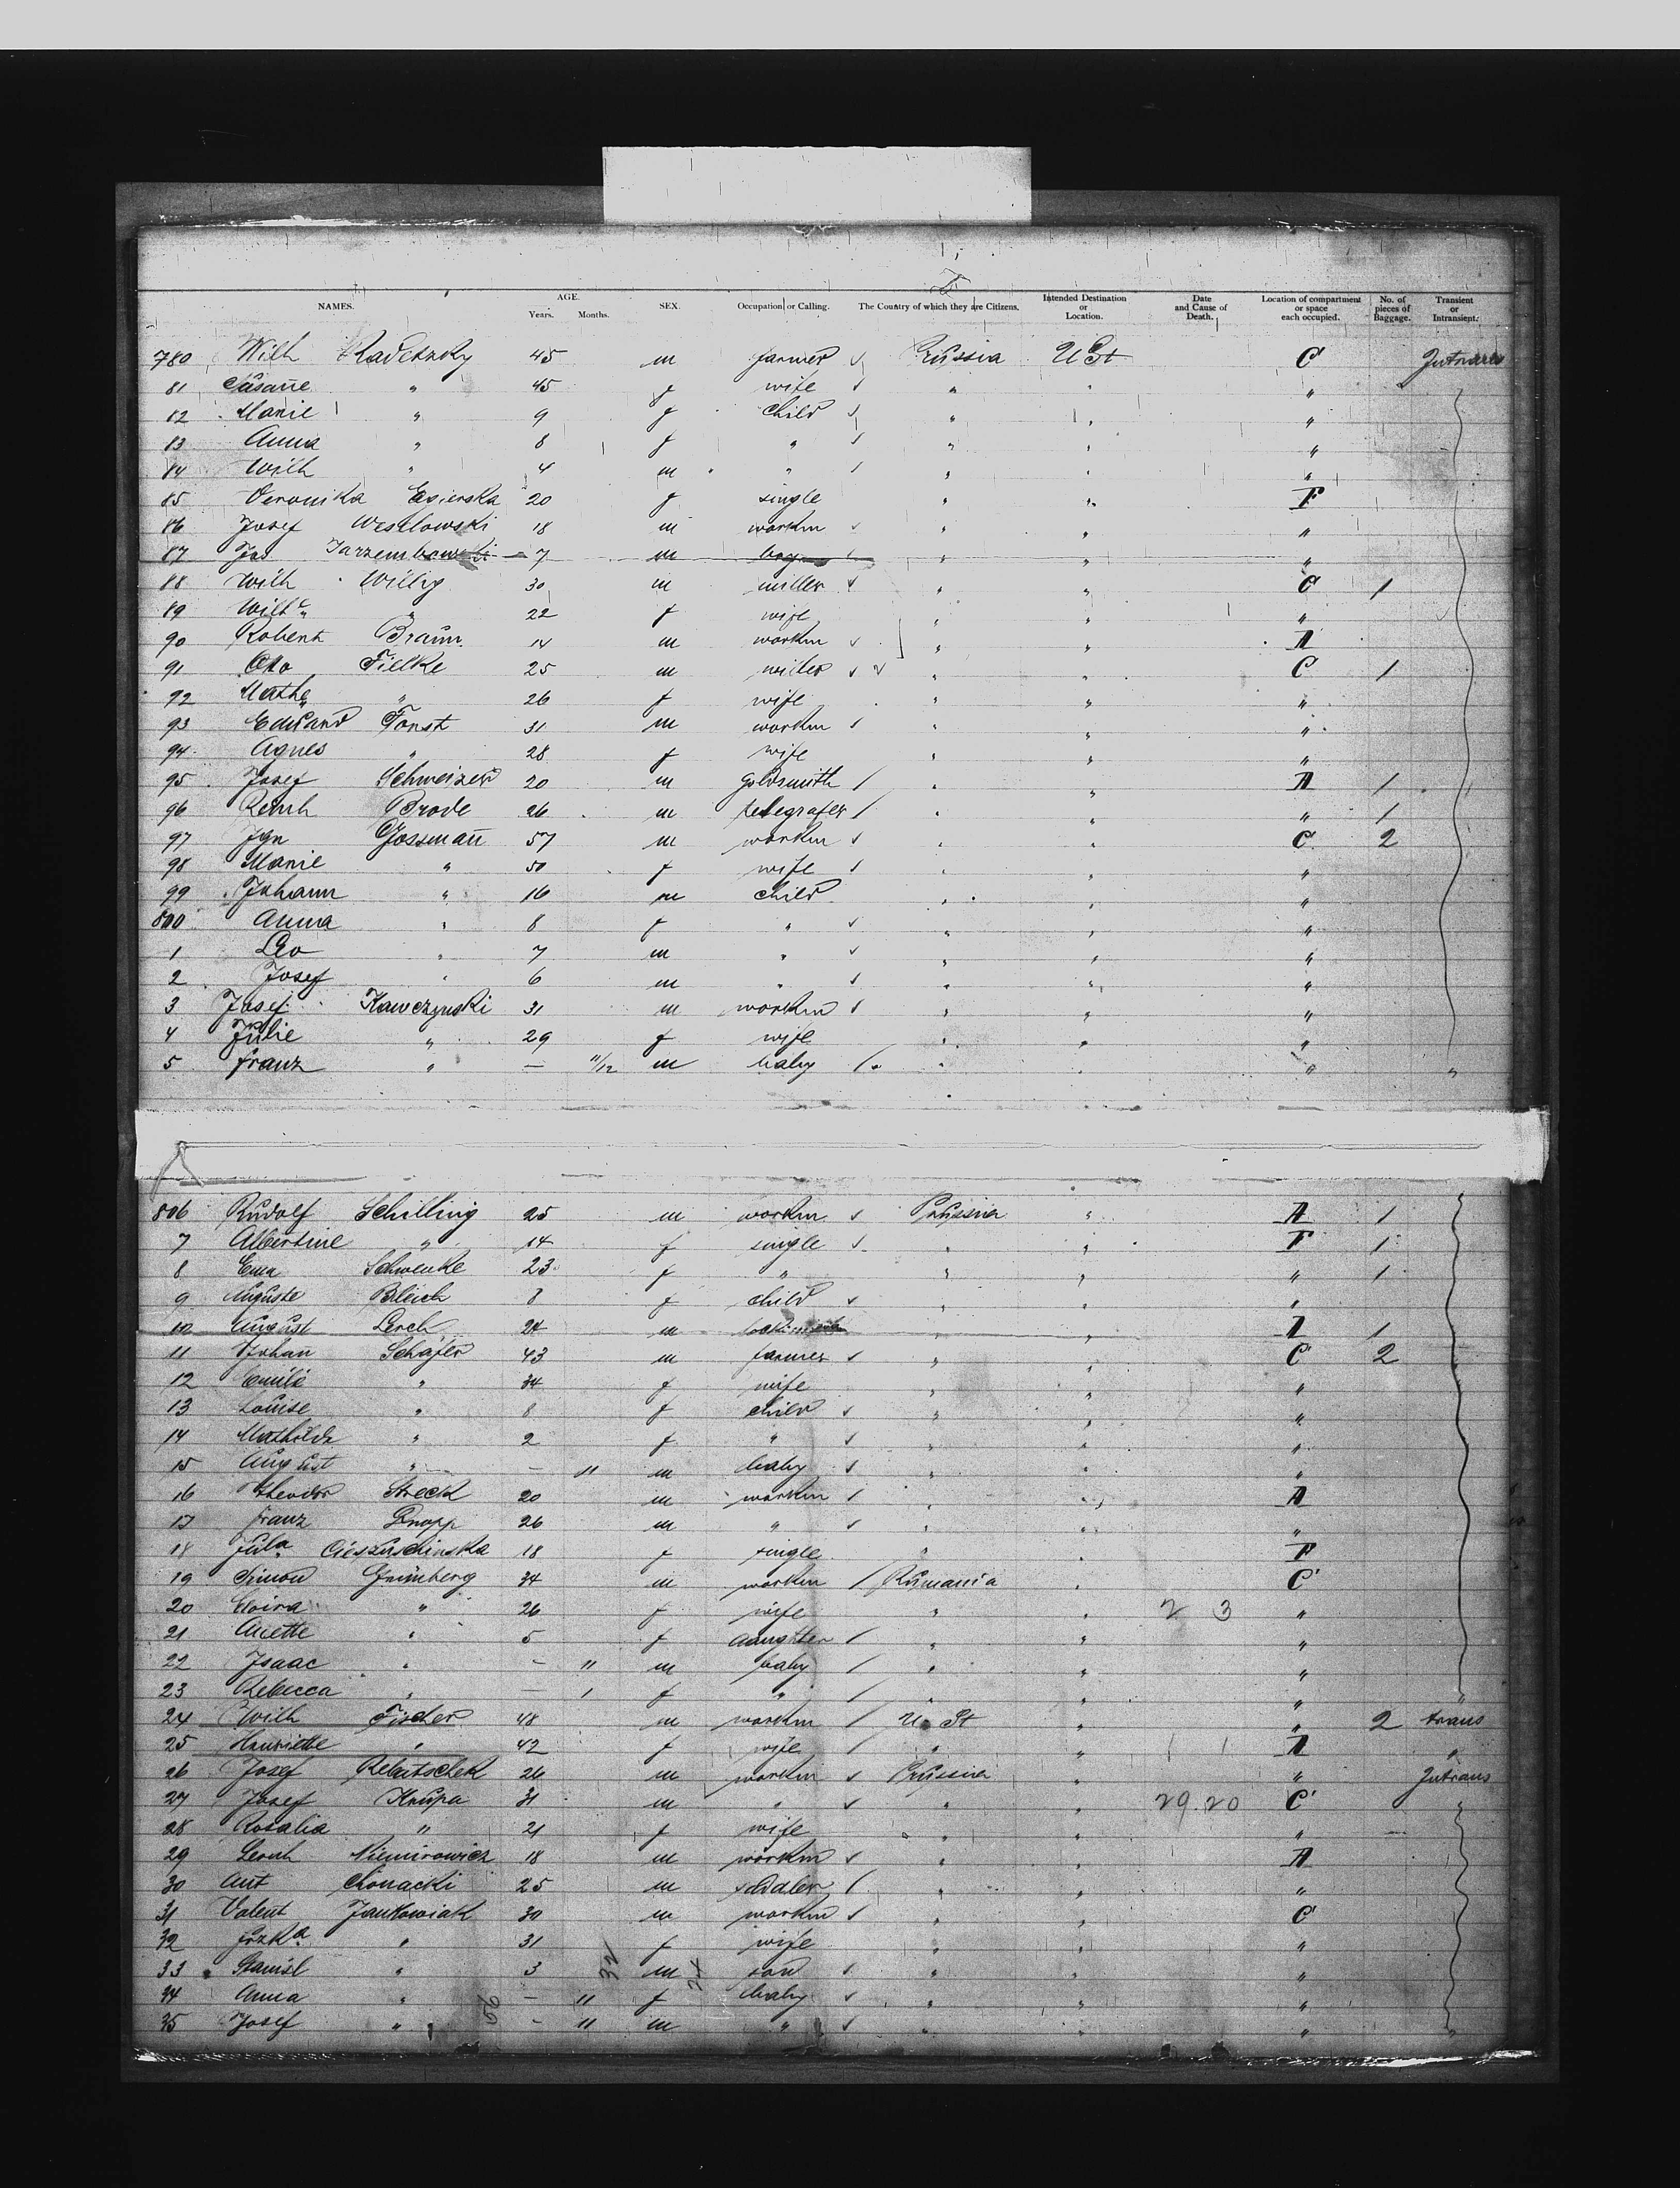 NAMES. AGE. Years. Months. SEX. Occupation or Calling. The Country of which they are Citizens. Intended Destination or Location. Date and Cause of Death. Location of compartment or space each occupied. No. of pieces of Baggage. Transient or Intransient.
780 Wilh Radetzky 45 m farmer Prussia U St C Intrans
81 Susanne " 45 f wife " " "
82 Marie " 9 f child " " "
83 Anna " 8 f " " " "
84 Wilh " 4 m " " " "
85 Veronika 20 f single " " F
86 Josef Weselowski 18 m workm " " "
87 Jos Jarzembowski 7 m boy " " "
88 Wilh Willig 30 m miller " " C 1
89 Wilhe " 22 f wife " " "
90 Robert Braun 14 m workm " " A
91 Otto Fielke 25 m miller " " C 1
92 Mathe " 26 f wife " " "
93 Eduard Forst 31 m workm " " "
94 Agnes " 28 f wife " " "
95 Josef Schweizer 20 m goldsmith " " A 1
96 Reinh Brode 26 m telegrafer " " " 1
97 Ign Gossmañ 57 m workm " " C 2
98 Marie " 50 f wife " " "
99 Johann " 16 m child " " "
800 Anna " 8 f " " " "
1 Leo " 7 m " " " "
2 Josef " 6 m " " " "
3 Josef Kawczynski 31 m workm " " "
4 Julie " 29 f wife " " "
5 Franz " — 11/12 m baby " " " "
806 Rudolf Schilling 25 m workm Prussia " A 1
7 Albertine " 14 f single " " F 1
8 Ema Schwenke 23 f " " " " 1
9 Auguste Bleich 8 f child " " "
10 August Lerch 24 m " " A 1
11 Johan Schäfer 43 m farmer " " C 2
12 Emilie " 34 f wife " " "
13 Louise " 8 f child " " "
14 Mathilde " 2 f " " " "
15 August " — 11 m baby " " "
16 Theodor Streck 20 m workm " " A
17 Franz Knopp 26 m " " " "
18 Jula 18 f single " " F
19 Simon Grünberg 34 m workm Rumania " C
20 " 26 f wife " " 2 3 "
21 Anette " 5 f daughter " " "
22 Isaac " — 11 m baby " " "
23 Rebecca " — 1 f " " " " "
24 Wilh Fischer 48 m workm U. St " " 2 trans
25 Henriette " 42 f wife " " A "
26 Josef Rebitschek 26 m workm Prussia " " Intrans
27 Josef Krupa 31 m " " " 29.20 C "
28 Rosalia " 21 f wife " " "
29 Leonh Niemirowicz 18 m workm " " A
30 Ant 25 m sadler " " "
31 Valent Jankowiak 30 m workm " " C
32 " 31 f wife " " "
33 Stanisl " 3 m son " " "
34 Anna " — 11 f baby " " "
35 Josef " — 11 m " " " " "